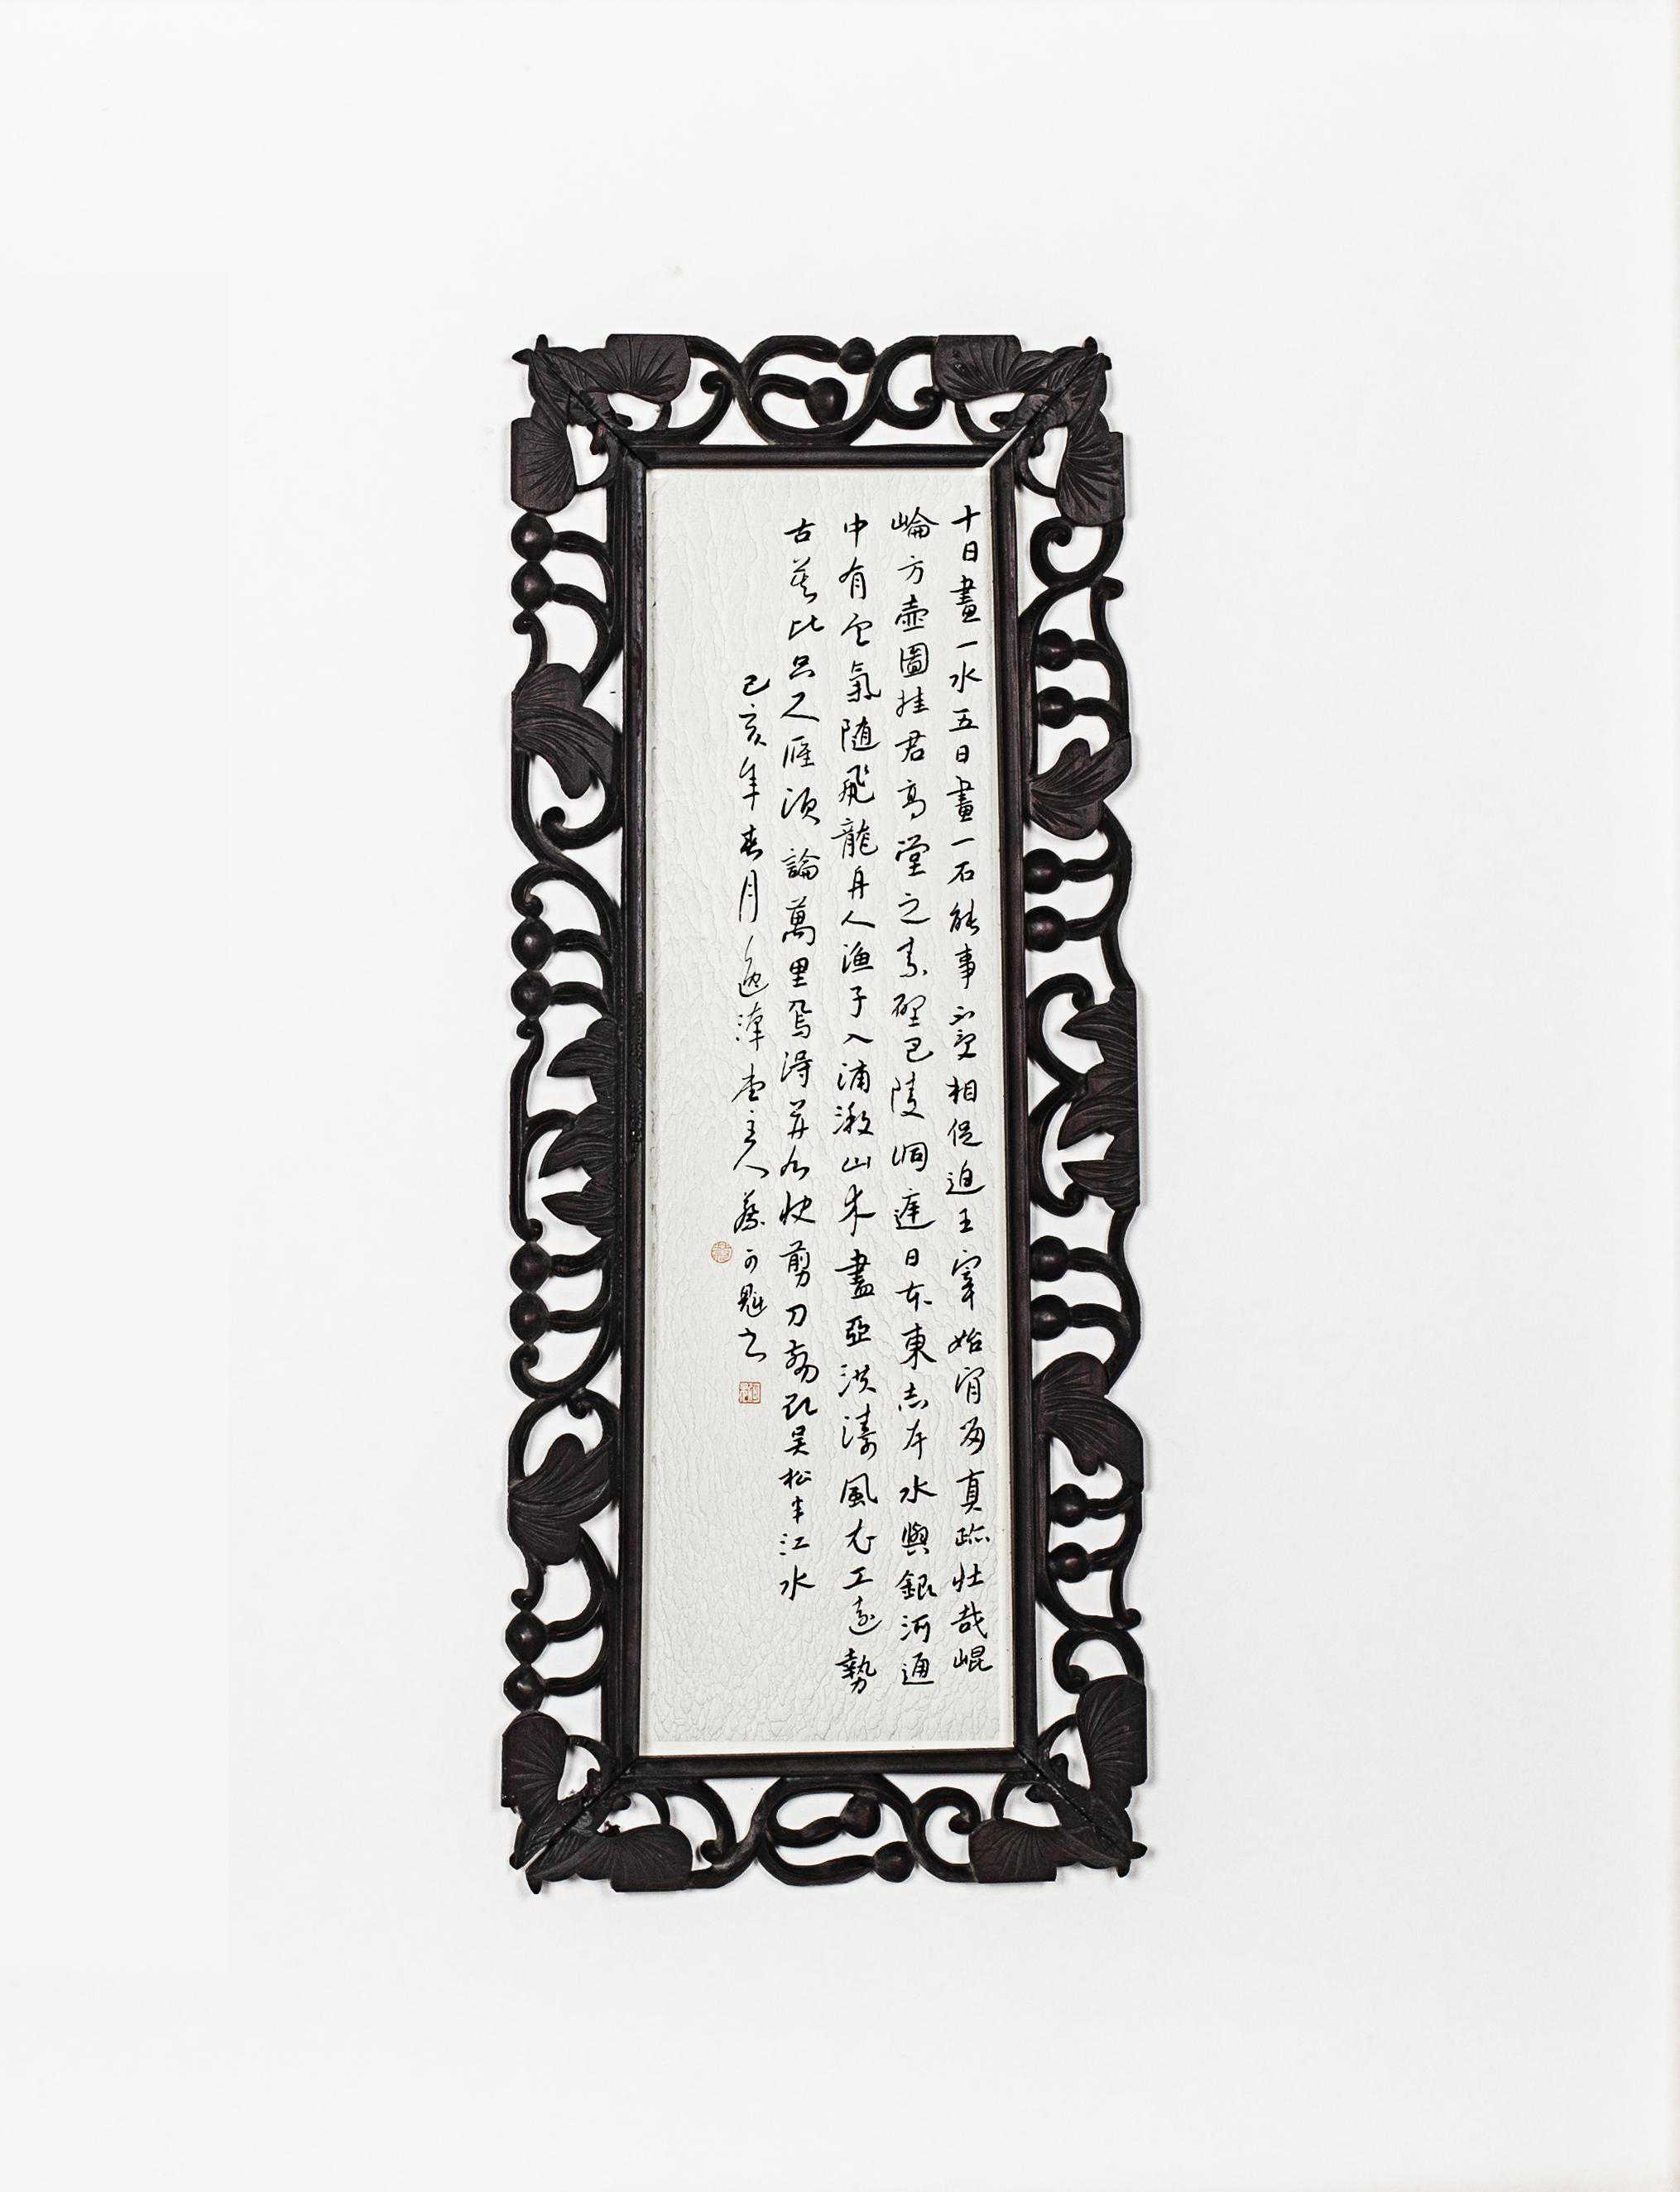 十日畫一水五日畫一石能事不受相促迫王宰始肯留真跡壯哉崐
崘方壺圖挂君高堂之素壁巴陵洞庭日本東赤岸水與銀河通
中有雲氣随飛龍舟人漁子入浦漵山木盡亞洪濤風尤工遠勢
古莫比咫尺應須論萬里焉得并州快剪刀剪取吳松半江水
己亥年春月逸主人蔡可魁書